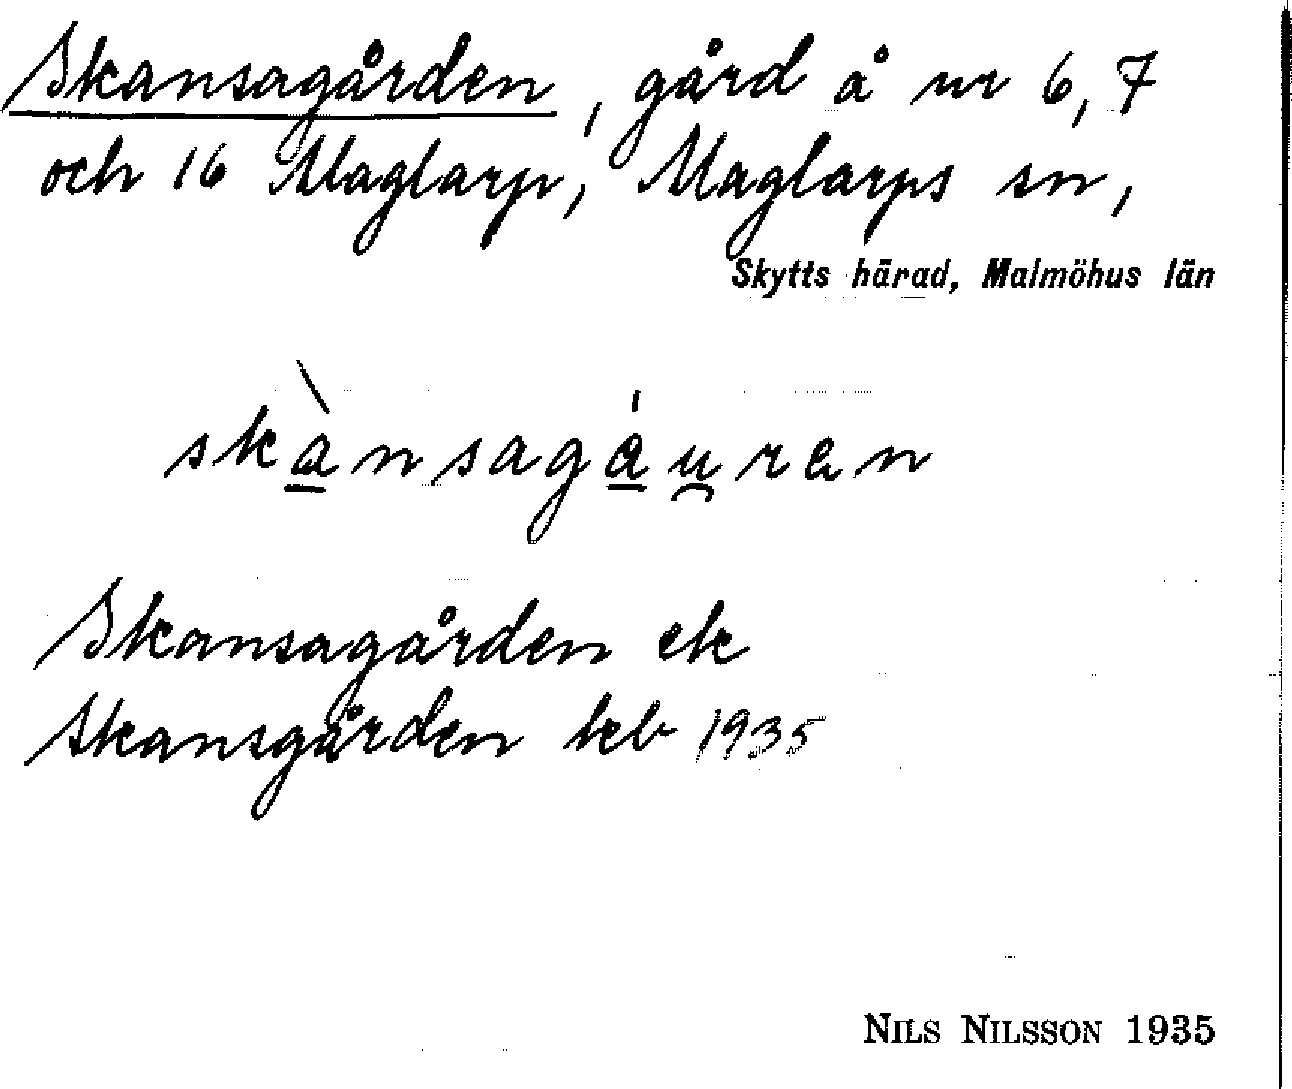 Skansagården, gård å nr 6, 7
och 16 Maglarp, Maglarps sn,
Skytts härad, Malmöhus län
skànsagáu̯ren
Skansagården ek
Skansgården kb 1935
NILS NILSSON 1935